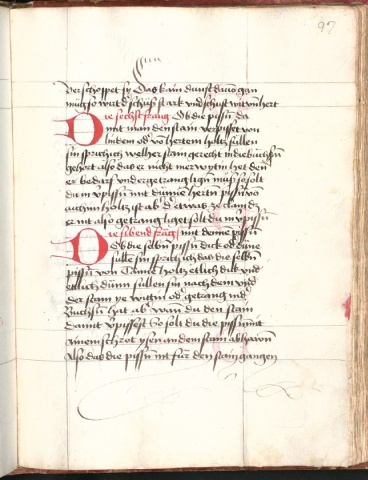 97
verschoppet sy Das kain dunst dauo gan
mug so wirt d schuß stark und schust wit un hert
Die sechst frag Ob die pissn da
mit man den stain verpisset von
lindem od vo hertem holtz sullen
sin sprich ich welher stain gerecht in die buchssen
gehort also das er nicht mer
er bedarf und ergetrang ligen mus so solt
du in vpissn mit dunne hertn pissn vo
aichim holtz ist ab d etwas ze clain dz
er nit also getrang liget solt du in vpissn
Die sibend frag mit dine pissn
Ob die selbn pissn dick od dune
sulle sin sprich ich das die selbn
pissn von holtz etlich dick und
etlich dunn sullen sin nach dem und
der stain ye witti od getrang ind
Buchssn hat ab wan du den stain
damit vpissest So solt du die pissn mit
ainem schrot ysen an dem stain abhawen
Also das die pissn nit fur den stain gangen